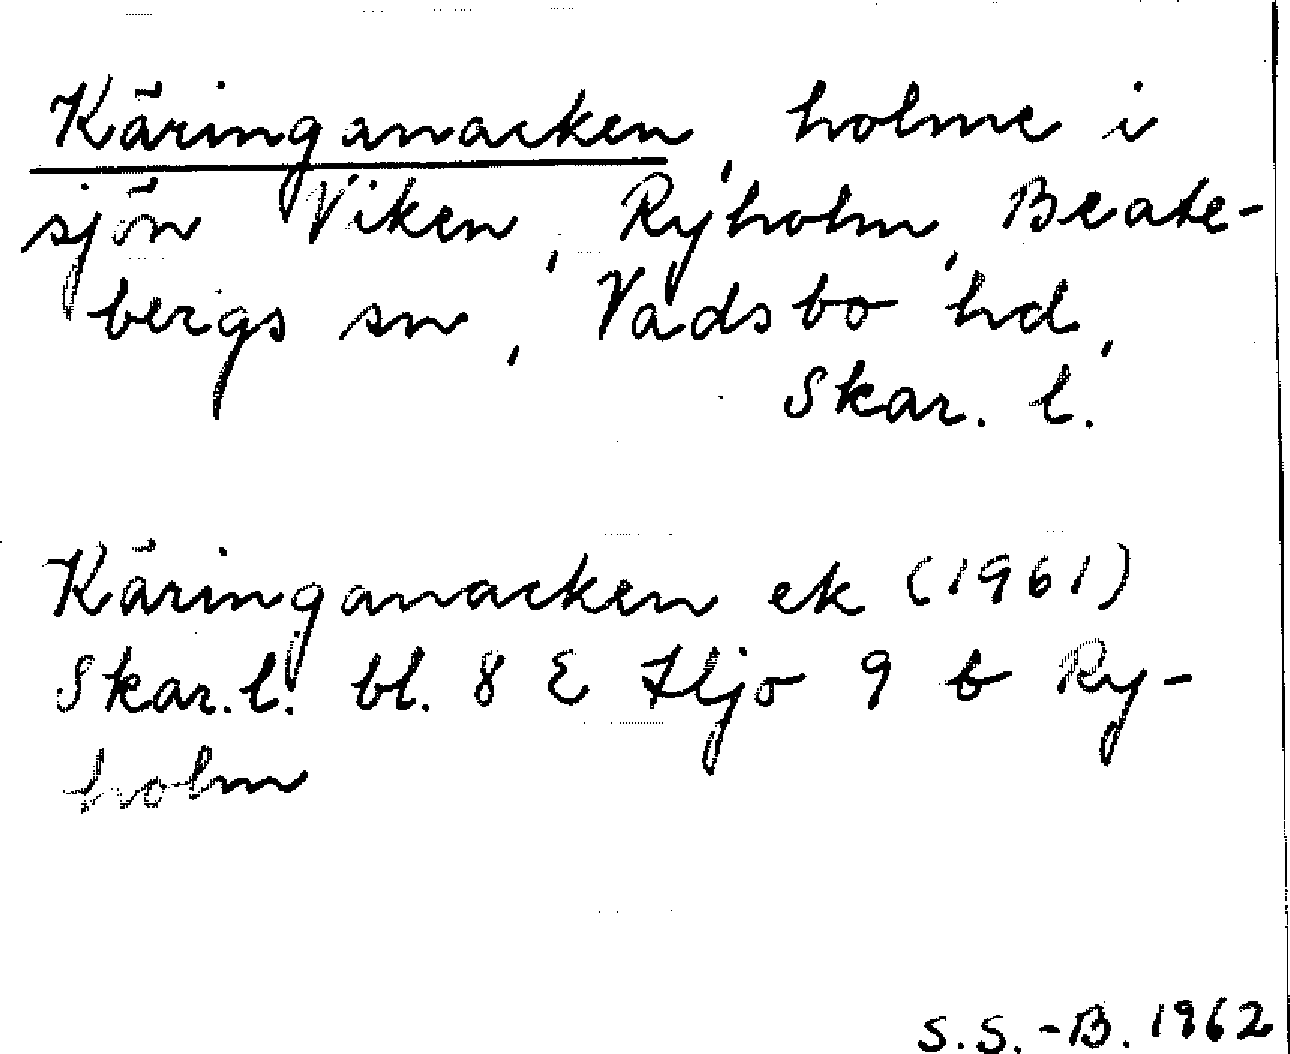 Käringanacken, holme i
sjön Viken, Ryholm, Beate-
bergs sn, Vadsbo hd,
Skar. l.
Käringanacken ek (1961)
Skar. l. bl. 8 E Hjo 9 b Ry-
holm
S.S.-B. 1962